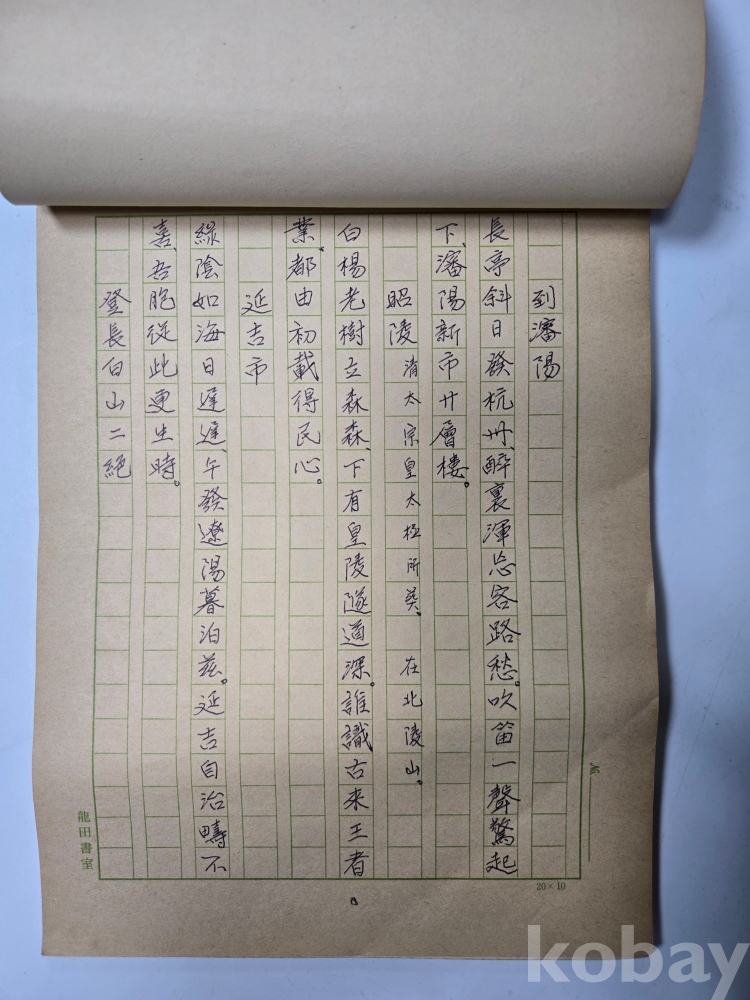 到瀋陽
長亭斜日發杭州、醉裏渾忘客路愁。吹笛一聲驚起
下、瀋陽新市廿層樓。
昭陵 清太宗皇太極所葬。 在北陵山。
白楊老樹立森森、下有皇陵隧道深。誰識古来王者
業、都由初載得民心。
延吉市
綠陰如海日遲遲、午發遼陽暮泊茲。延吉自治疇不
喜、吾胞從此更生時。
登長白山二絕
龍田書室
20×10
kobay